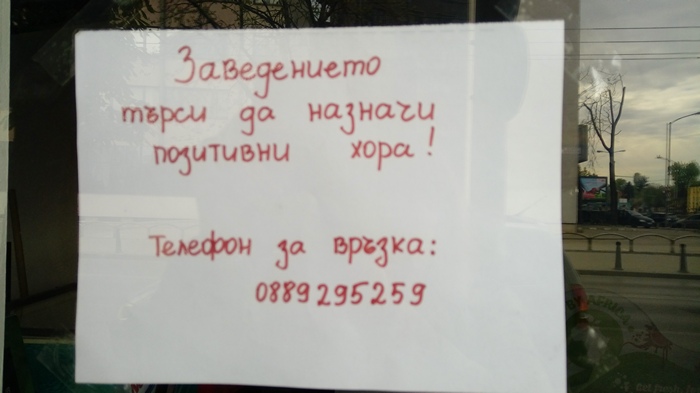 Заведението
търси да назначи
позитивни хора!
Телефон за връзка:
0889295259